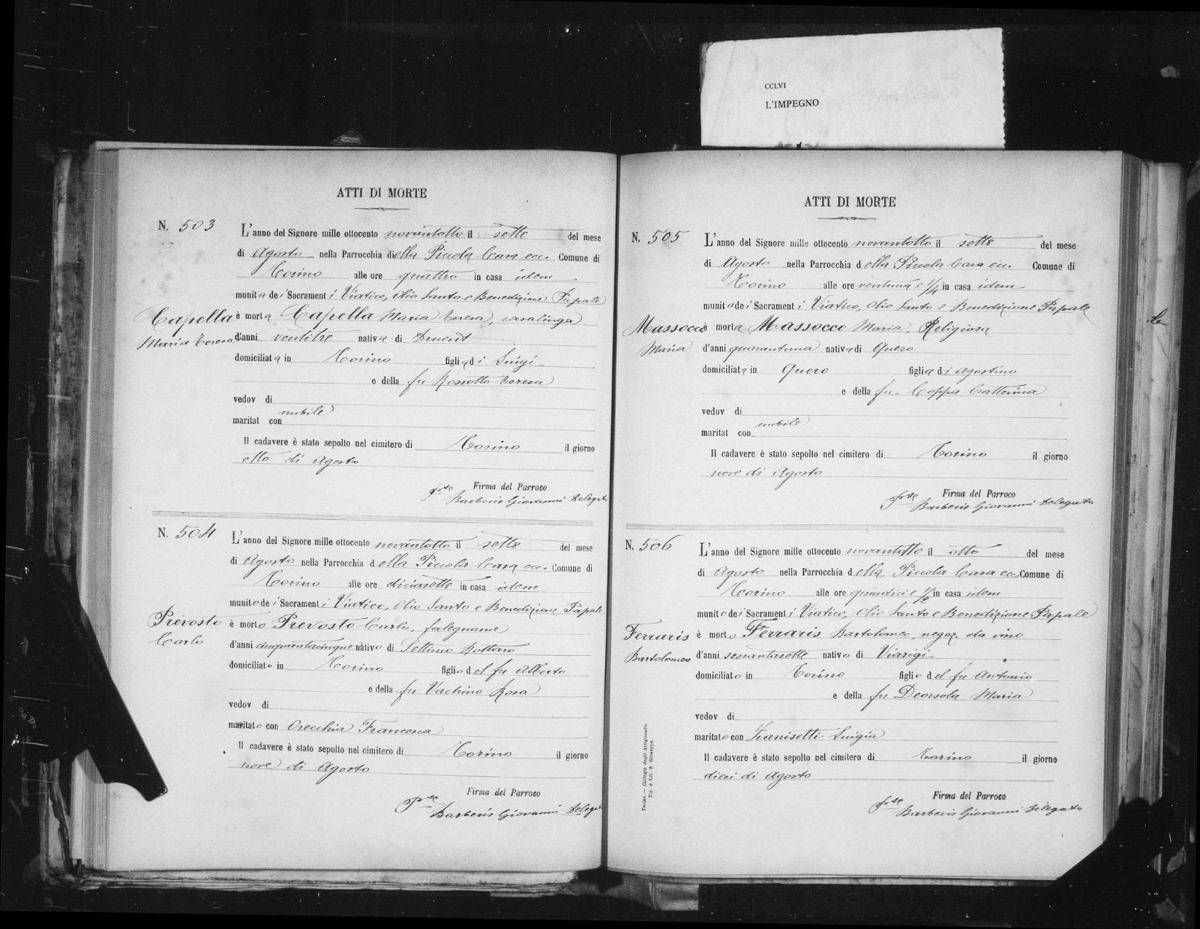 CCLVI
L'IMPEGNO
ATTI DI MORTE
N. 503
Capella
Maria Teresa
L'anno del Signore mille ottocento novantotto il sette del mese
di Agosto nella Parrocchia della Piccola Casa ecc. Comune di
Torino alle ore quattro in casa idem
munita de i Sacramenti Viatico, Olio Santo e Benedizione Papale
è morta Capella Maria Teresa, casalinga
d'anni ventitre nativa di Druent
domiciliata in Torino figlia di Luigi
e della fu Rosotto Teresa
vedov di
nubile
maritat con
Il cadavere è stato sepolto nel cimitero di Torino il giorno
otto di Agosto
Firma del Parroco
Barberis Giovanni Delegato
N. 504
Prevosto
Carlo
L'anno del Signore mille ottocento novantotto il sette del mese
di Agosto nella Parrocchia della Piccola Casa ecc. Comune di
Torino alle ore diciasette in casa idem
munito de i Sacramenti Viatico, Olio Santo e Benedizione Papale
è morto Prevosto Carlo, falegname
d'anni cinquantacinque nativo di Settimo Rottaro
domiciliato in Torino figlio del fu Alberto
e della fu Vachino Rosa
vedov di
maritato con Orecchia Francesca
Il cadavere è stato sepolto nel cimitero di Torino il giorno
nove di Agosto
Firma del Parroco
Barberis Giovanni Delegato
ATTI DI MORTE
N. 505
Massocco
Maria
L'anno del Signore mille ottocento novantotto il sette del mese
di Agosto nella Parrocchia della Piccola Casa ecc. Comune di
Torino alle ore ventuna e 1/4 in casa idem
munita de i Sacramenti Viatico, Olio Santo e Benedizione Papale
è morta Massocco Maria, Religiosa
d'anni quarantuna nativa di Quero
domiciliata in Quero figlia di Agostino
e della fu Coppa Catterina
vedov di
nubile
maritat con
Il cadavere è stato sepolto nel cimitero di Torino il giorno
nove di Agosto
Firma del Parroco
Barberis Giovanni Delegato
N. 506
Ferraris
Bartolomeo
L'anno del Signore mille ottocento novantotto il otto del mese
di Agosto nella Parrocchia della Piccola Casa ecc. Comune di
Torino alle ore quindici e 1/2 in casa idem
munito de i Sacramenti Viatico, Olio Santo e Benedizione Papale
è morto Ferraris Bartolomeo, negoz. da vino
d'anni sessantasette nativo di Viarigi
domiciliato in Torino figlio del fu Antonio
e della fu Deorsola Maria
vedov di
maritato con Franisetti Luigia
Il cadavere è stato sepolto nel cimitero di Torino il giorno
dieci di Agosto
Firma del Parroco
Barberis Giovanni Delegato
Torino — Collegio degli Artigianelli
Tip. e Lit. S. Giuseppe.